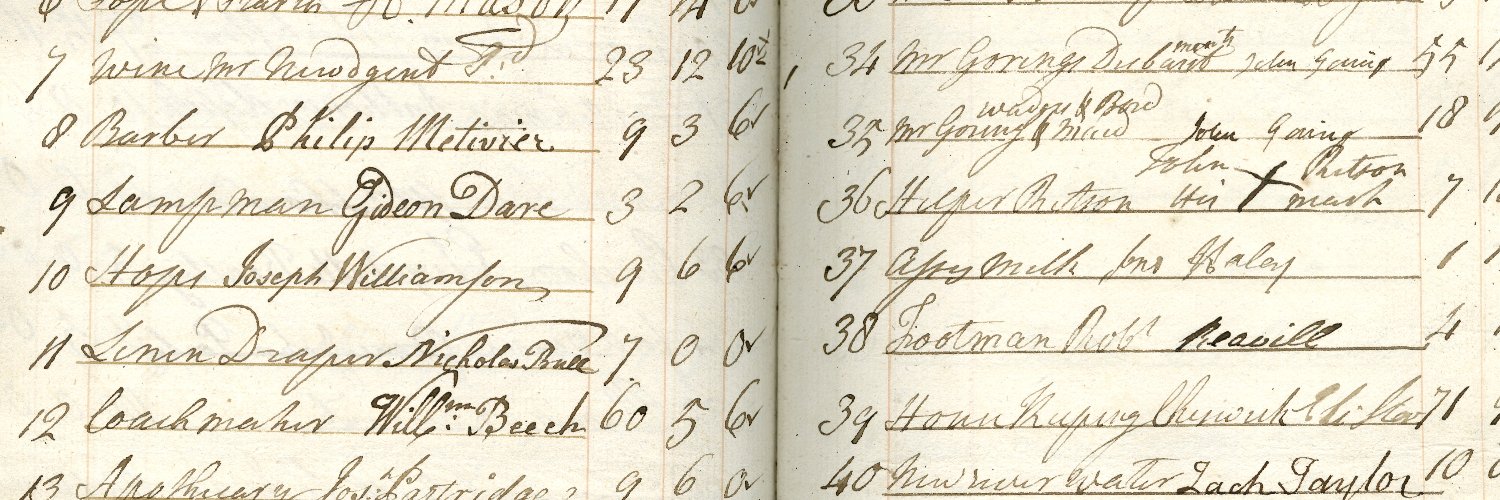 7 Wine Mr Newdgent Pd 23 12 10½
8 Barber Philip Metivier 9 3 6
9 Lampman Gideon Dare 3 2 6
10 Hops Joseph Williamson 9 6 6
11 Linen Draper Nicholas Bull 7 0 0
12 Coachmaker Willm Beech 60 5 6
13 Apothecary Jos. Partridge 9 6 0
34 Mr Gorings John Goring 55
wages & Bord
35 Mr Goring & Maid John Goring 18
John Ritson
36 Helper Ritson His X mark 7
37 Assy Milk Haley 1
38 Footman Robt Reavill 4
39 House Keeping Cheswick 71
40 New river water Zach Taylor 10